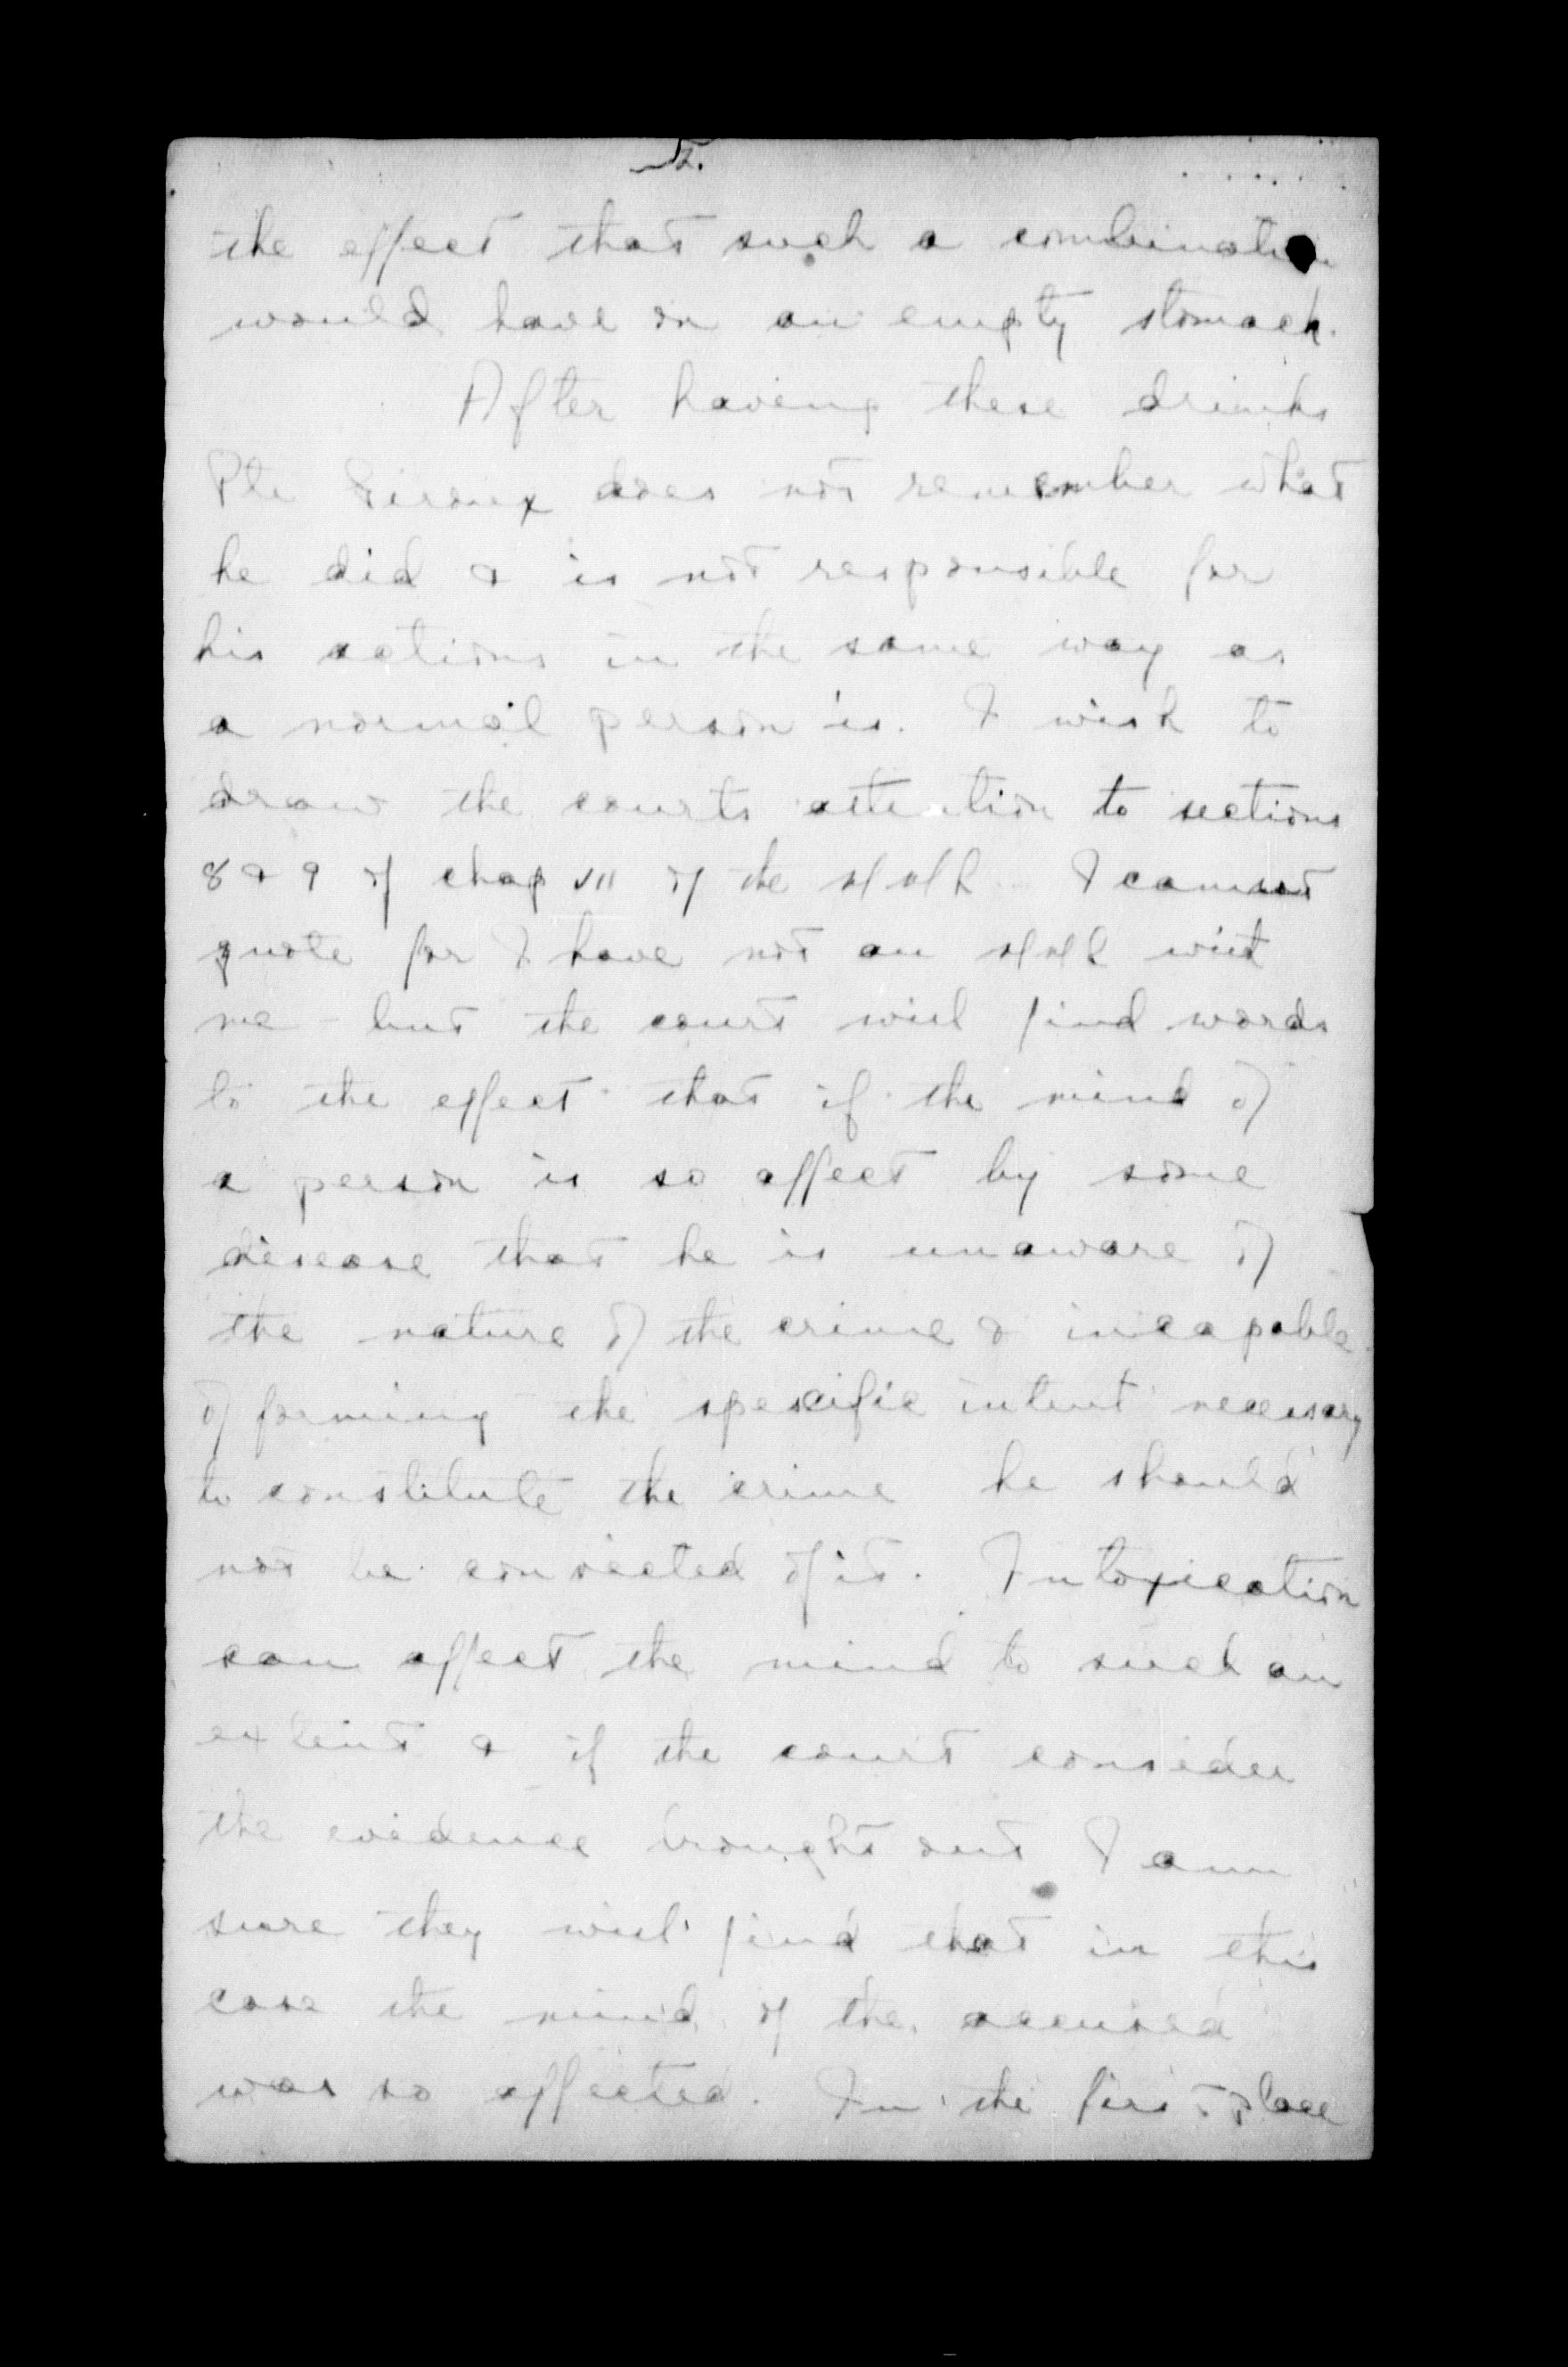 2.
the effect that such a combination
would have on an empty stomach.
After having these drinks
Pte Giroux does not remember what
he did & is not responsible for
his actions in the same way as
a normal person is. I wish to
draw the courts attention to sections
8 & 9 of chap VII of the MML I cannot
quote for I have not an MML with
me - but the court will find words
to the effect that if the mind of
a person is so affect by some
disease that he is unaware of
the nature of the crime & incapable
of forming the specific intent necessary
to constitute the crime he should
not be convicted of it. Intoxication
can affect the mind to such an
extent & if the court consider
the evidence brought out I am
sure they will find that in this
case the mind of the accused
was so affected. In the first place